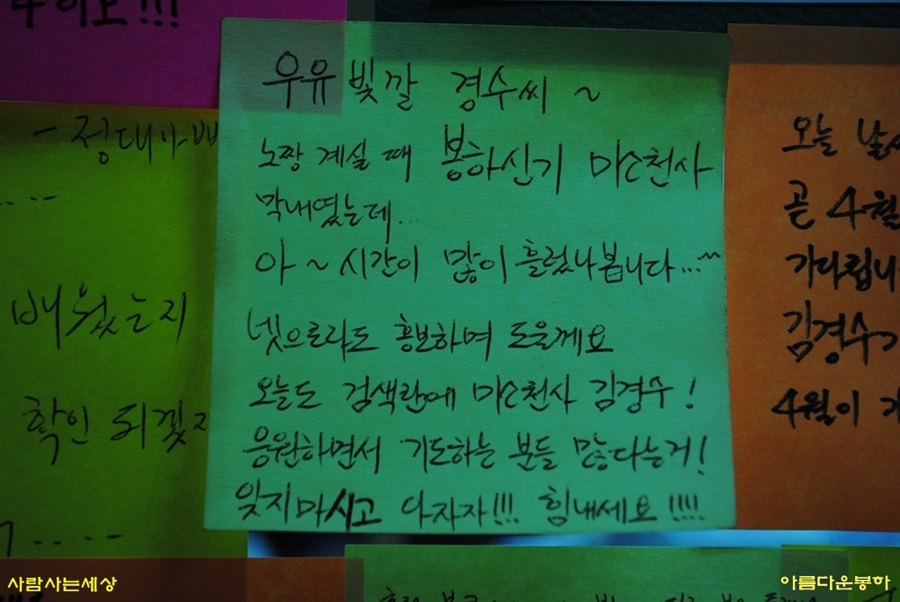 우유 빛깔 경수씨 ~
노짱 계실 때 봉하신기 미소천사
막내였는데...
아 ~ 시간이 많이 흘렀나봅니다...^^
넷으로라도 홍보하며 도울께요
오늘도 검색란에 미소천사 김경수!
응원하면서 기도하는 분들 많다는거!
잊지마시고 아자자!!! 힘내세요!!!!
- 정대아빠
배웠는지
확인 되겠지
오늘 날
곧 4월
가다립니
김경수
4월이
사람사는세상
아름다운봉하